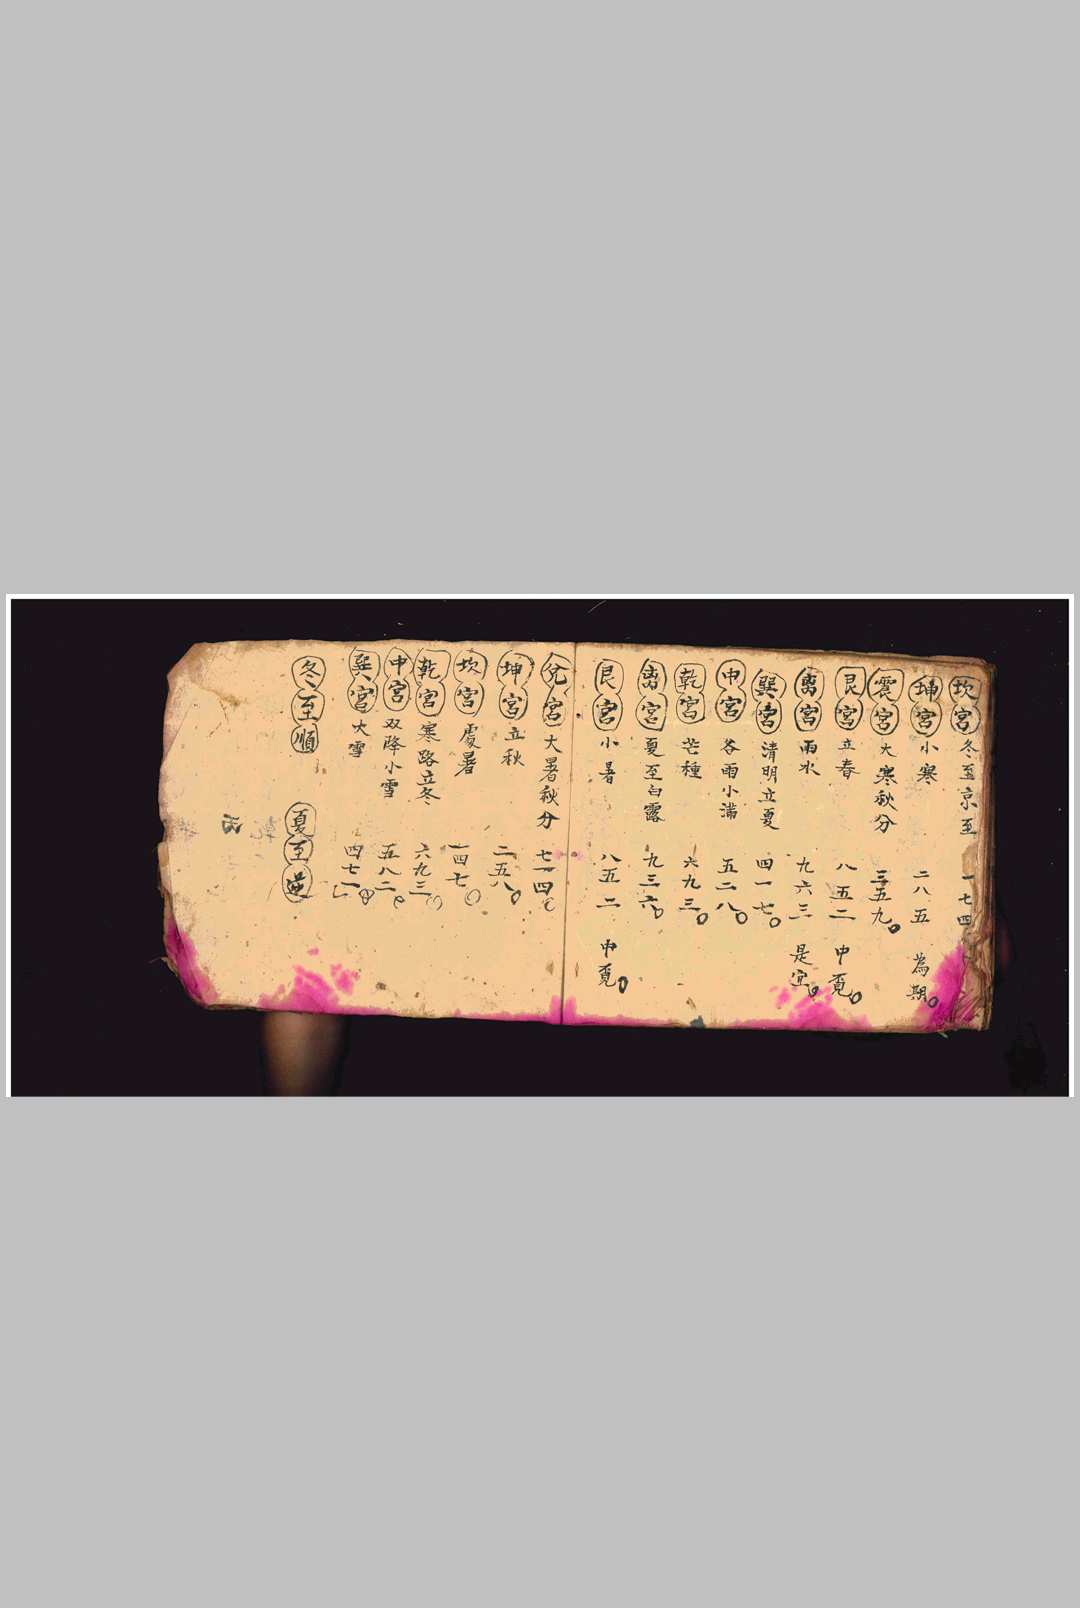 坎宮 冬至京至 一七四
坤宮 小寒 二八五 為期
震宮 大寒秋分 三五九
艮宮 立春 八五二 中覓
离宮 雨水 九六三 是宜
巽宮 清明立夏 四一七
中宮 谷雨小滿 五二八
乾宮 芒種 六九三
离宮 夏至白露 九三六
艮宮 小暑 八五二 中覓
兌宮 大暑秋分 七一四
坤宮 立秋 二五八
坎宮 處暑 一四七
乾宮 寒路立冬 六九三
中宮 双降小雪 五八二
巽宮 大雪 四七一
冬至順 夏至逆